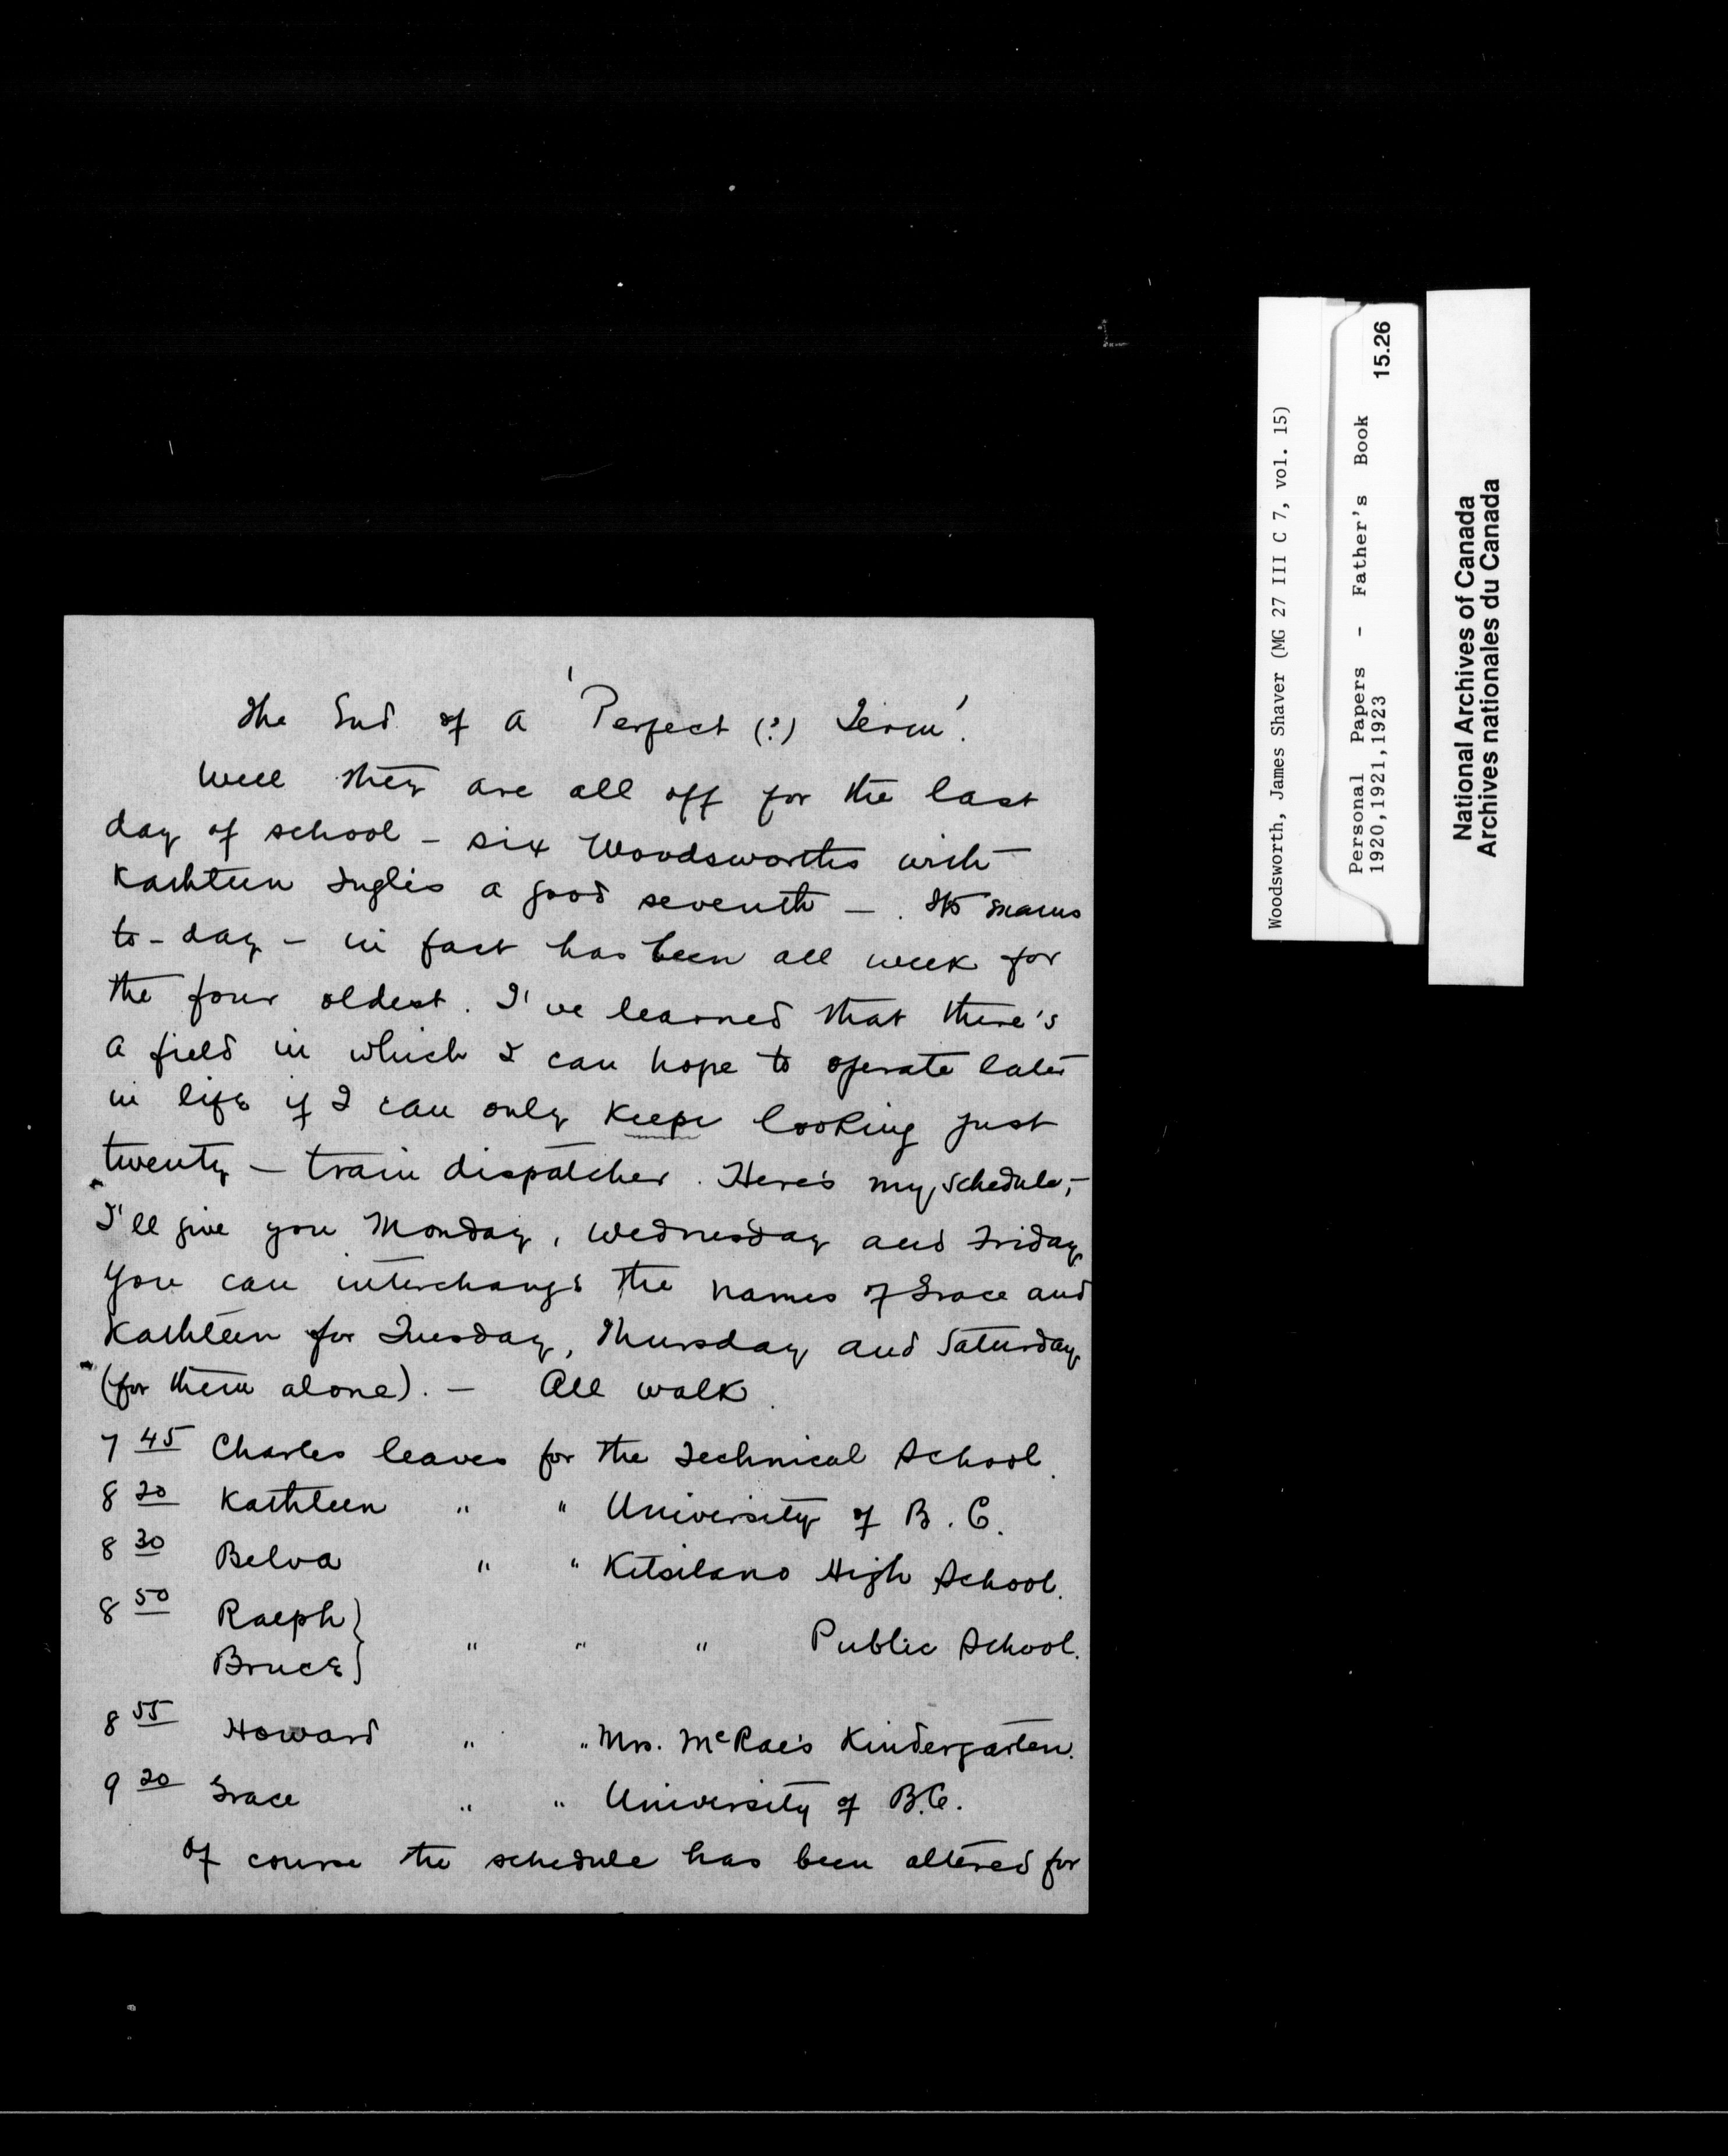 The End of a 'Perfect (?) Term'.
Well they are all off for the last
day of school - six Woodsworths with
Kathleen Inglis a good seventh - . It's exams
to-day - in fact has been all week for
the four oldest. I've learned that there's
a field in which I can hope to operate later
in life if I can only keep looking just
twenty - train dispatcher. Here's my schedule,-
I'll give you Monday, Wednesday and Friday
you can interchange the names of Grace and
Kathleen for Tuesday, Thursday and Saturday
(for them alone). - All walk.
7 45 Charles leaves for the Technical School.
8 20 Kathleen " " University of B.C.
8 30 Belva " " Kitsilano High School.
8 50 Ralph }
Bruce } " " " Public School.
8 55 Howard " " Mrs. McRae's Kindergarten.
9 20 Grace " " University of B.C.
Of course the schedule has been altered for
Woodsworth, James Shaver (MG 27 III C 7, vol. 15)
Personal Papers - Father's Book
1920,1921,1923
15.26
National Archives of Canada
Archives nationales du Canada